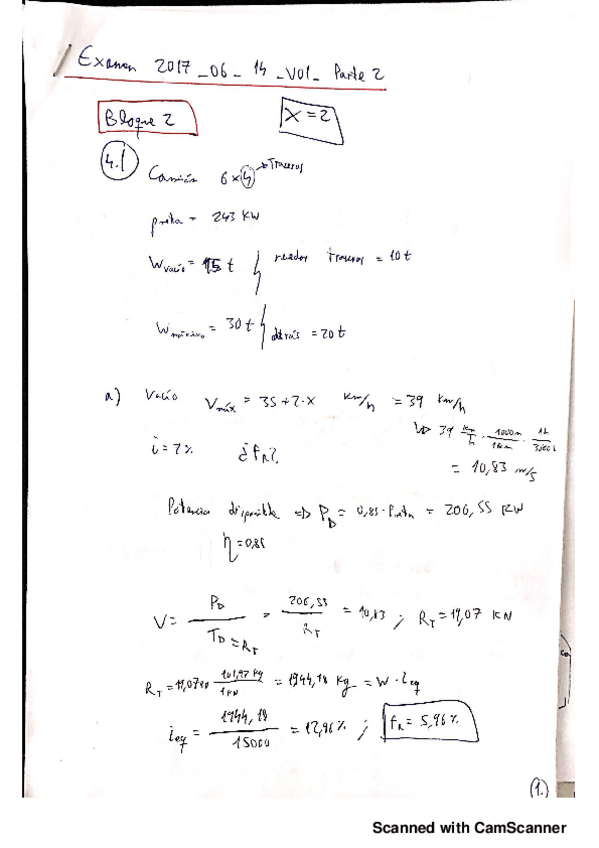 Examen 2017_06_14_V01_Parte 2
Bloque 2
X=2
4.1
Camión 6x4 → Traseros
pneta = 243 KW
Wvacío = 15 t
ruedas traseras = 10t
Wmáximo = 30 t
detrás = 20t
a) Vacío Vmáx = 35+2·x Km/h = 39 Km/h
↳ 39 Km/h · 1000m/1Km · 1h/3600s
i=7% ¿fR?
= 10,83 m/s
Potencia disponible => PD = 0,85·Pneta = 206,55 KW
η=0,85
V = PD/TD=RT = 206,55/RT = 10,83 ; RT=19,07 KN
RT= 101,97 Kg/1 KN = 1944,18 Kg = W·ieq
ieq = 1944,18/15000 = 12,96% ; fR = 5,96%
(1.)
Scanned with CamScanner